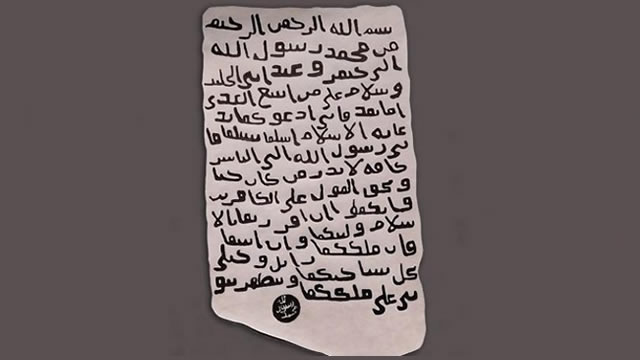 بسم الله الرحمن الرحيم
من محمد رسول الله
الى جيفر وعبد ابنى الجلند
وسلام على من اتبع الهدى
اما بعد فانى ادعوكما بد
عايه الاسلام اسلما تسلما فا
نى رسول الله الى الناس
كافه لانذر من كان حيا
ويحق القول على الكافرين
وانكما ان اقررتما بالا
سلام وليتكما وان ابيتما
فان ملككما زايل وخيلى
تحل ساحتكما وتظهر نبو
تى على ملككما
الله
رسول
محمد